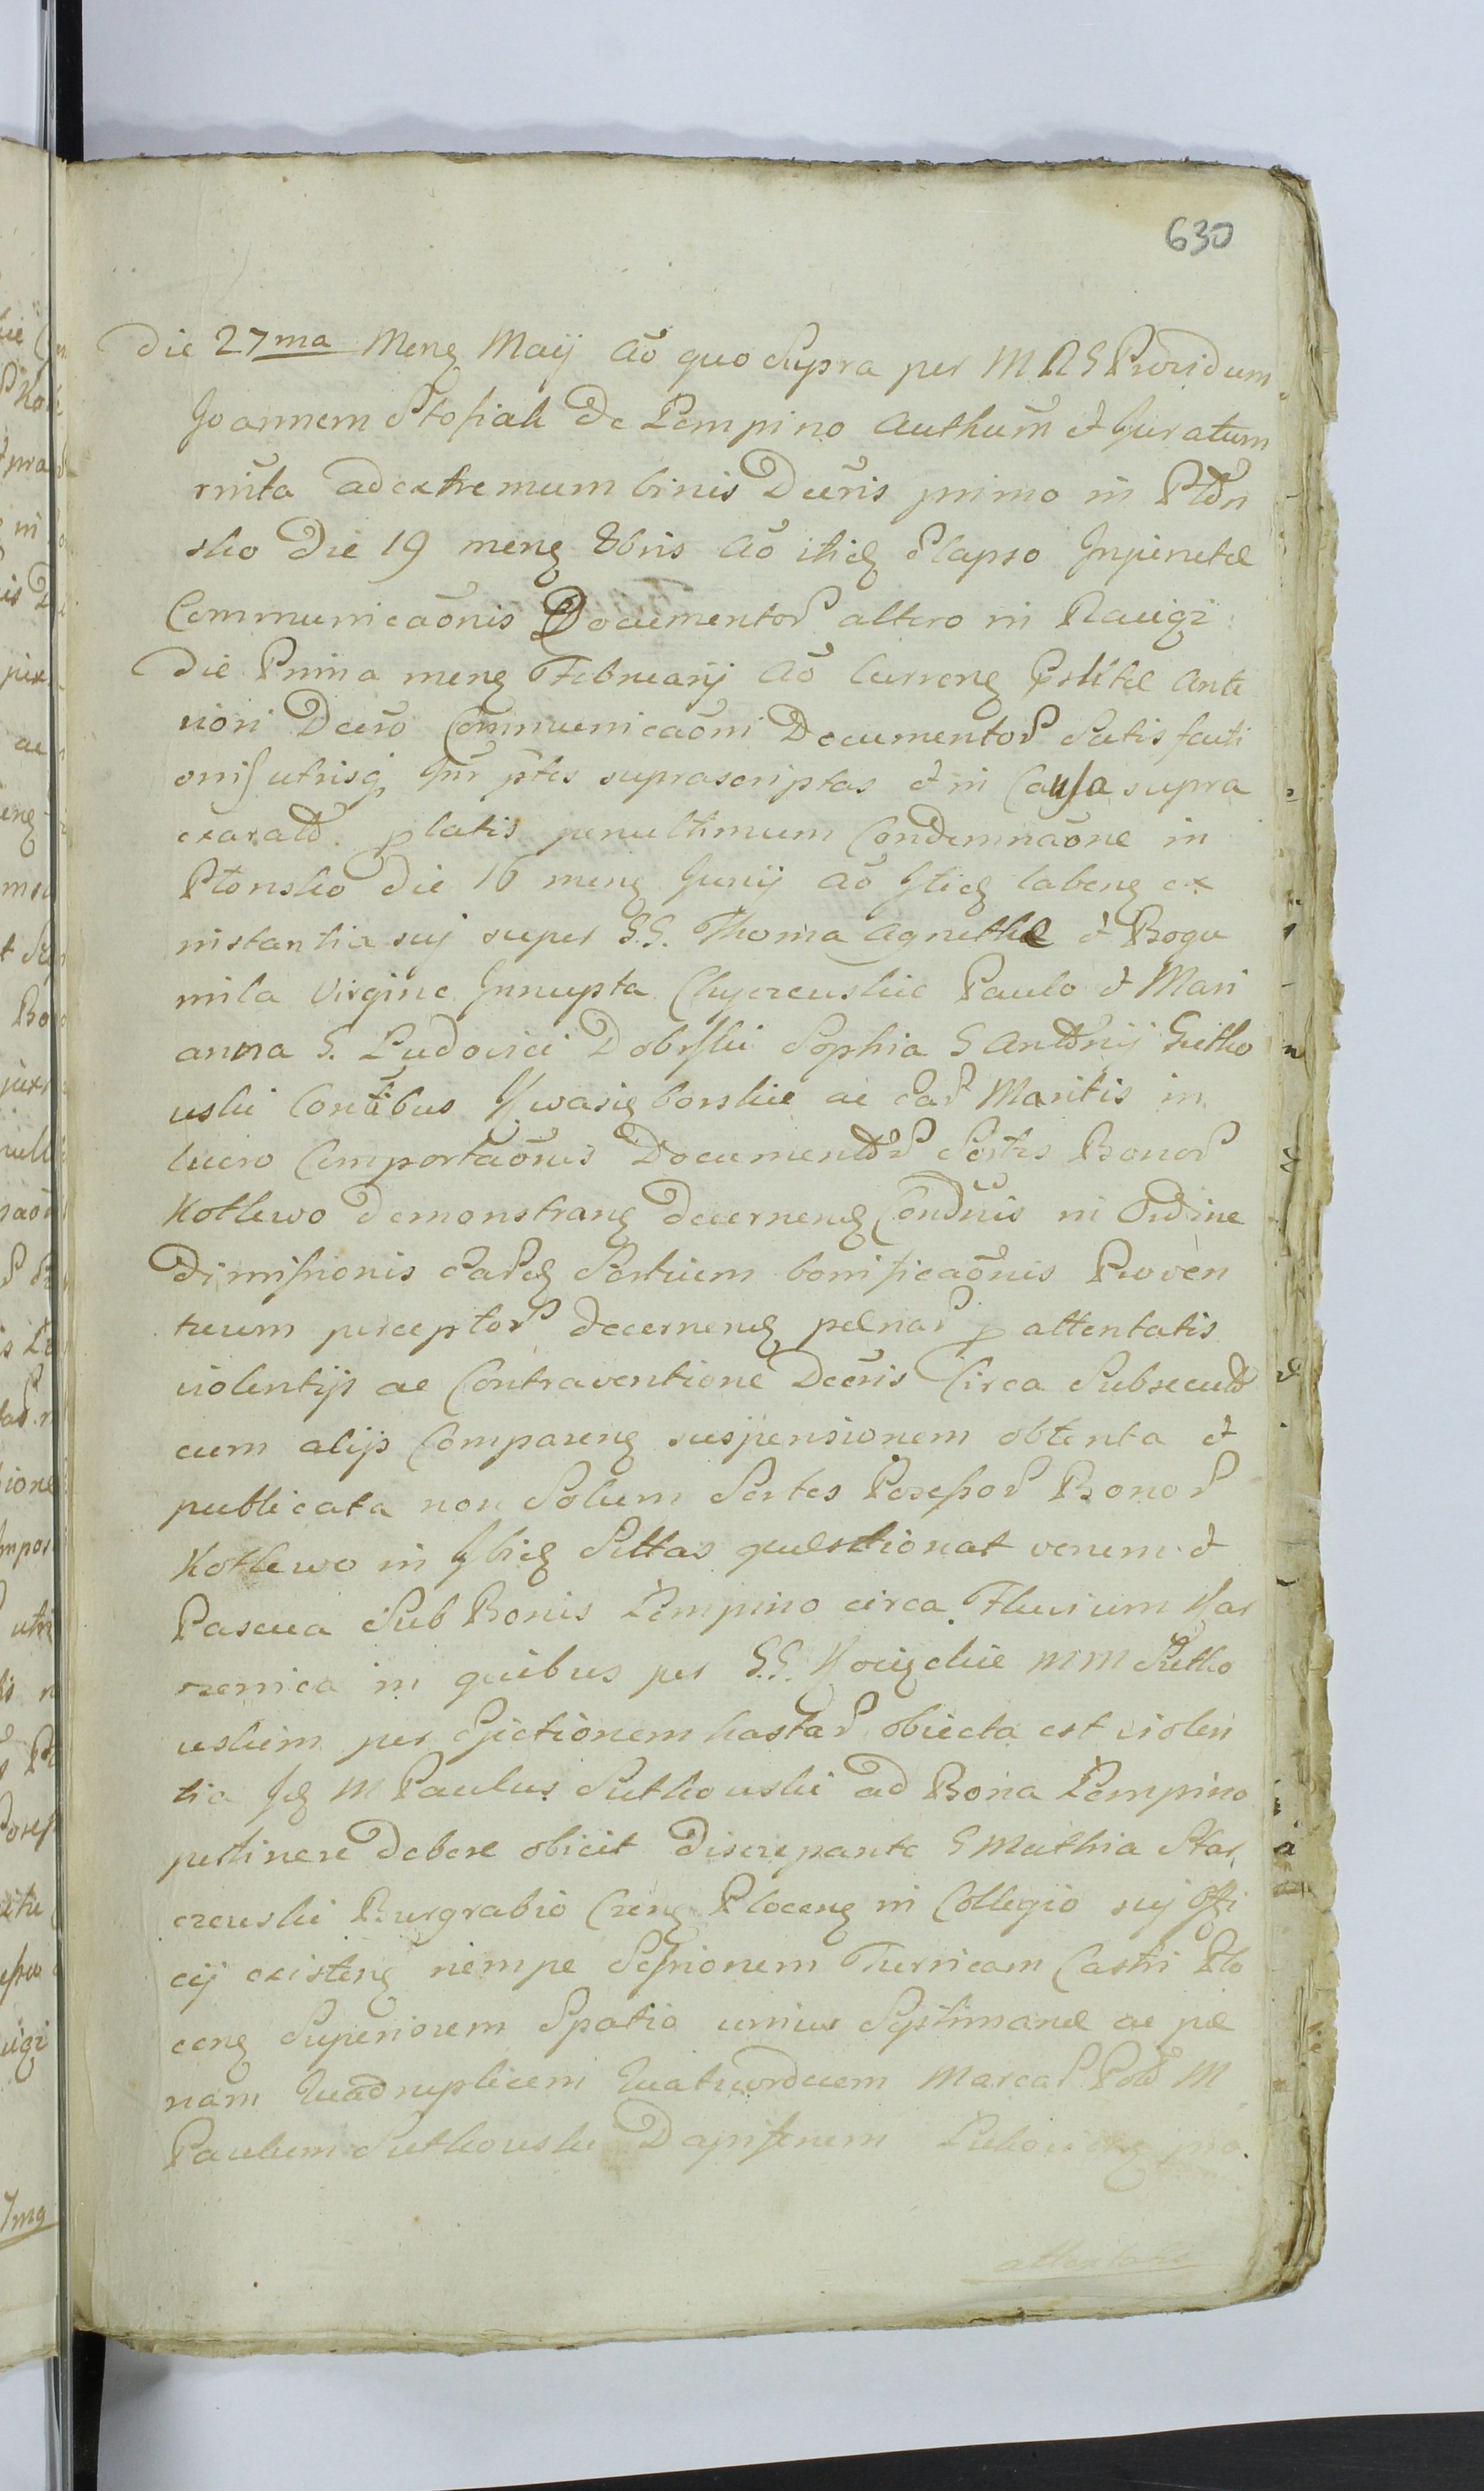 630
Die 27ma Mens Maij Aō quo Supra per MRS Providum
Joannem Stosiak De Lempino Authum̄ et Juratum
rnita ad extremum binis Decris primo in Płoń
sko Die 19 mens 8bris Aō itidq Elapso
Communicaōnis Documentor altero in Raciąż
Die Prima mens Februarij Aō Currens Ante
riori Decro Communicaōni Documentor Satisfacti
onis utrisq Inr ptes suprascriptas et in Causa supra
exarato p latis penultimum Condemnaōne in
Płonsko Die 16 mens Junij Aō labens ex
instantia sui super S.S. Thoma Agnethæ et Bogu
mila Virgine Innupta Paulo et Mari
anna S. Ludovici Dobrski Sophia S Antonij Sutko
wski Kwasięborskie ac ear Maritis in
lucro Comportaōnis Documentor Sortis Bonor
Kotlewo demonstrans decernens Condnis in Ordine
Dimissionis Sortium bonificaōnis Proven
tuum perceptor decernens pænar p attentatis
violentijs ac Contraventione Decris Circa Subsecuto
cum alijs Comparens suspensionem obtenta et
publicata non Solum Sortes Possessor Bonor
Kotlewo in Sittas quæstionat verum et
Pascua Sub Bonis Lempino circa Fluvium Kar
wenica in quibus per S.S. MM Sutko
wskim per Ejectionem hastar obiecta est violen
tia M Paulus Sutkowski ad Bona Lempino
pertinere Debere obicit Discrepante S Mathia Star
czewski Burgrabio Crens Plocens in Collegio sui Offi
cij existens nempe Sessionem Turricam Castri Plo
cens Superiorem Spatio unius Septimanæ ac pæ
nam Quadruplicem Quatuordecem Marcar Pol M
Paulum Sutkowski Dapiferum pro.
attentatis